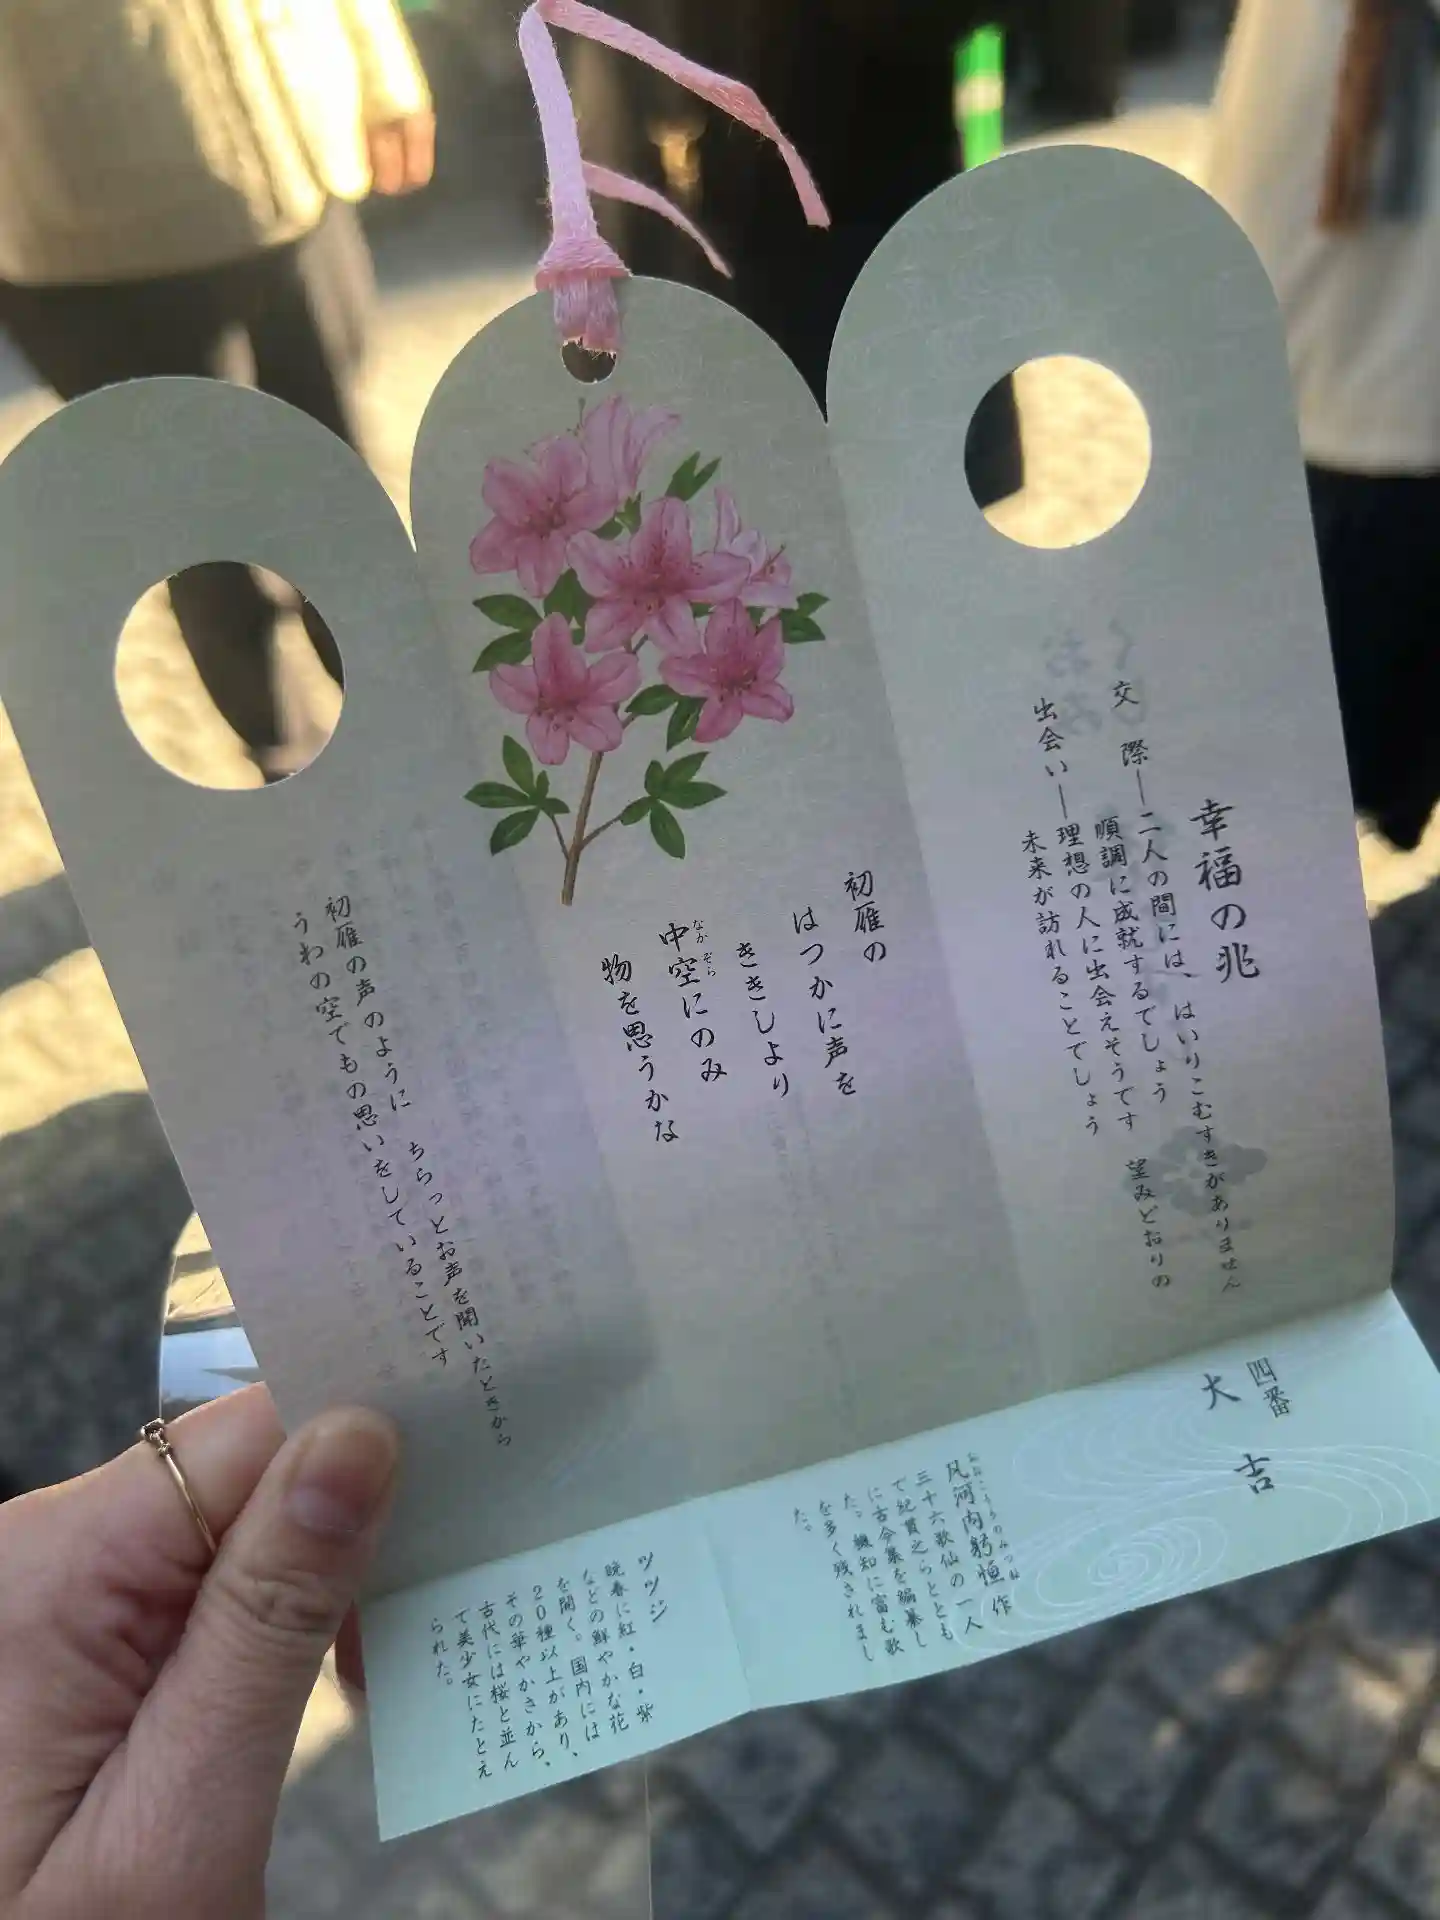 四番
大吉
幸福の兆
交際―二人の間には、はいりこむすきがありません
順調に成就するでしょう
出会い―理想の人に出会えそうです 望みどおりの
未来が訪れることでしょう
初雁の
はつかに声を
ききしより
中空にのみ
なかぞら
物を思うかな
初雁の声のように ちらっとお声を聞いたときから
うわの空でもの思いをしていることです
凡河内躬恒作
おおこうちのみつね
三十六歌仙の一人
で紀貫之らととも
に古今集を編纂し
た。機知に富む歌
を多く残されまし
た。
ツツジ
晩春に紅・白・紫
などの鮮やかな花
を開く。国内には
20種以上があり、
その華やかさから、
古代には桜と並ん
で美少女にたとえ
られた。